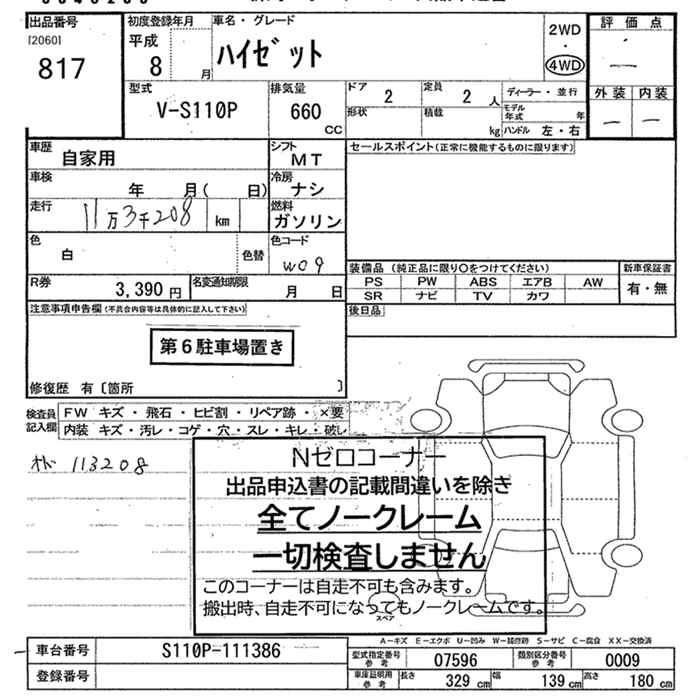 出品番号
[2060]
817
初度登録年月
平成
8 月
車名・グレード
ハイゼット
2WD
・
4WD
評価点
—
外装 内装
— —
型式
V-S110P
排気量
660
CC
ドア
2
定員
2 人
ディーラー・並行
形状
積載
kg
モデル
年式 年
ハンドル 左・右
車歴
自家用
シフト
MT
セールスポイント(正常に機能するものに限ります)
車検
年 月( 日)
冷房
ナシ
走行
11万3千208 km
燃料
ガソリン
色
白
色替
色コード
W09
装備品 (純正品に限り○をつけてください)
新車保証書
PS PW ABS エアB AW
有・無
SR ナビ TV カワ
R券
3,390 円
名変通知期限
月 日
後日品
注意事項申告欄(不具合内容等は具体的に記入して下さい)
第6駐車場置き
修復歴 有〔箇所 〕
検査員
記入欄
FW キズ・飛石・ヒビ割・リペア跡・×要
内装 キズ・汚レ・コゲ・穴・スレ・キレ・破レ
113208
Nゼロコーナー
出品申込書の記載間違いを除き
全てノークレーム
一切検査しません
このコーナーは自走不可も含みます。
搬出時、自走不可になってもノークレームです。
スペア
A−キズ E−エクボ U−凹み W−補修跡 S−サビ C−腐食 XX−交換済
車台番号
S110P-111386
型式指定番号
参考
07596
類別区分番号
参考
0009
登録番号
車庫証明用
参考
長さ 329 cm
幅 139 cm
高さ 180 cm